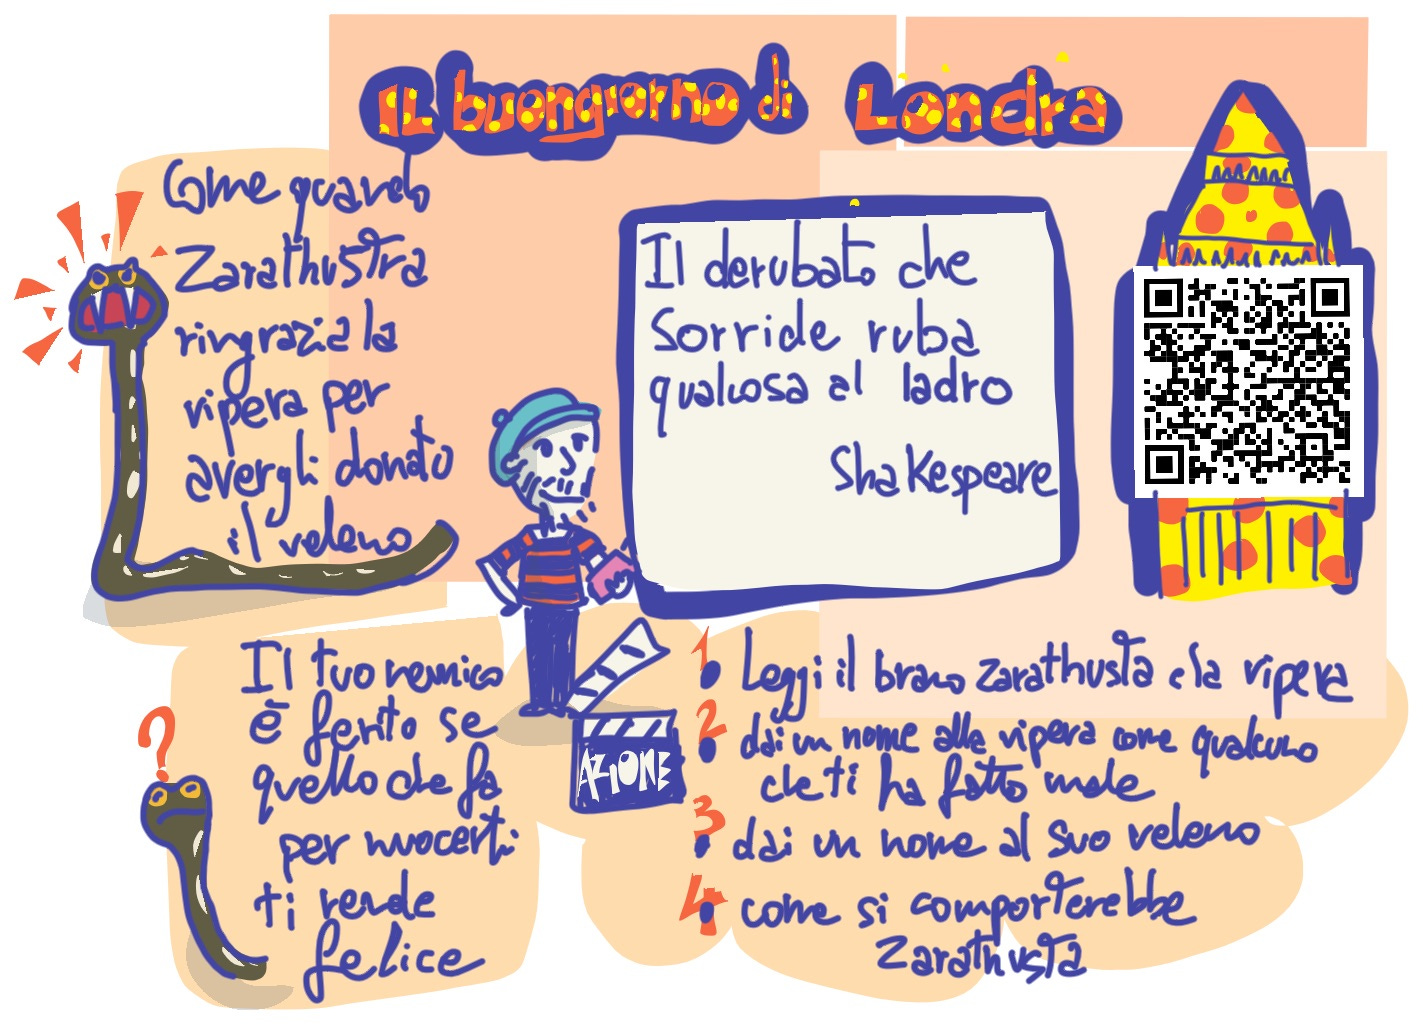 IL buongiorno di Londra
Come quando
Zarathustra
ringrazia la
vipera per
avergli donato
il veleno
Il derubato che
sorride ruba
qualcosa al ladro
Shakespeare
Il tuo nemico
è ferito se
quello che fa
per nuocerti
ti rende
felice
?
AZIONE
1. Leggi il brano Zarathusta e la vipera
2. dai un nome alla vipera come qualcuno
che ti ha fatto male
3. dai un nome al suo veleno
4. come si comporterebbe
Zarathusta